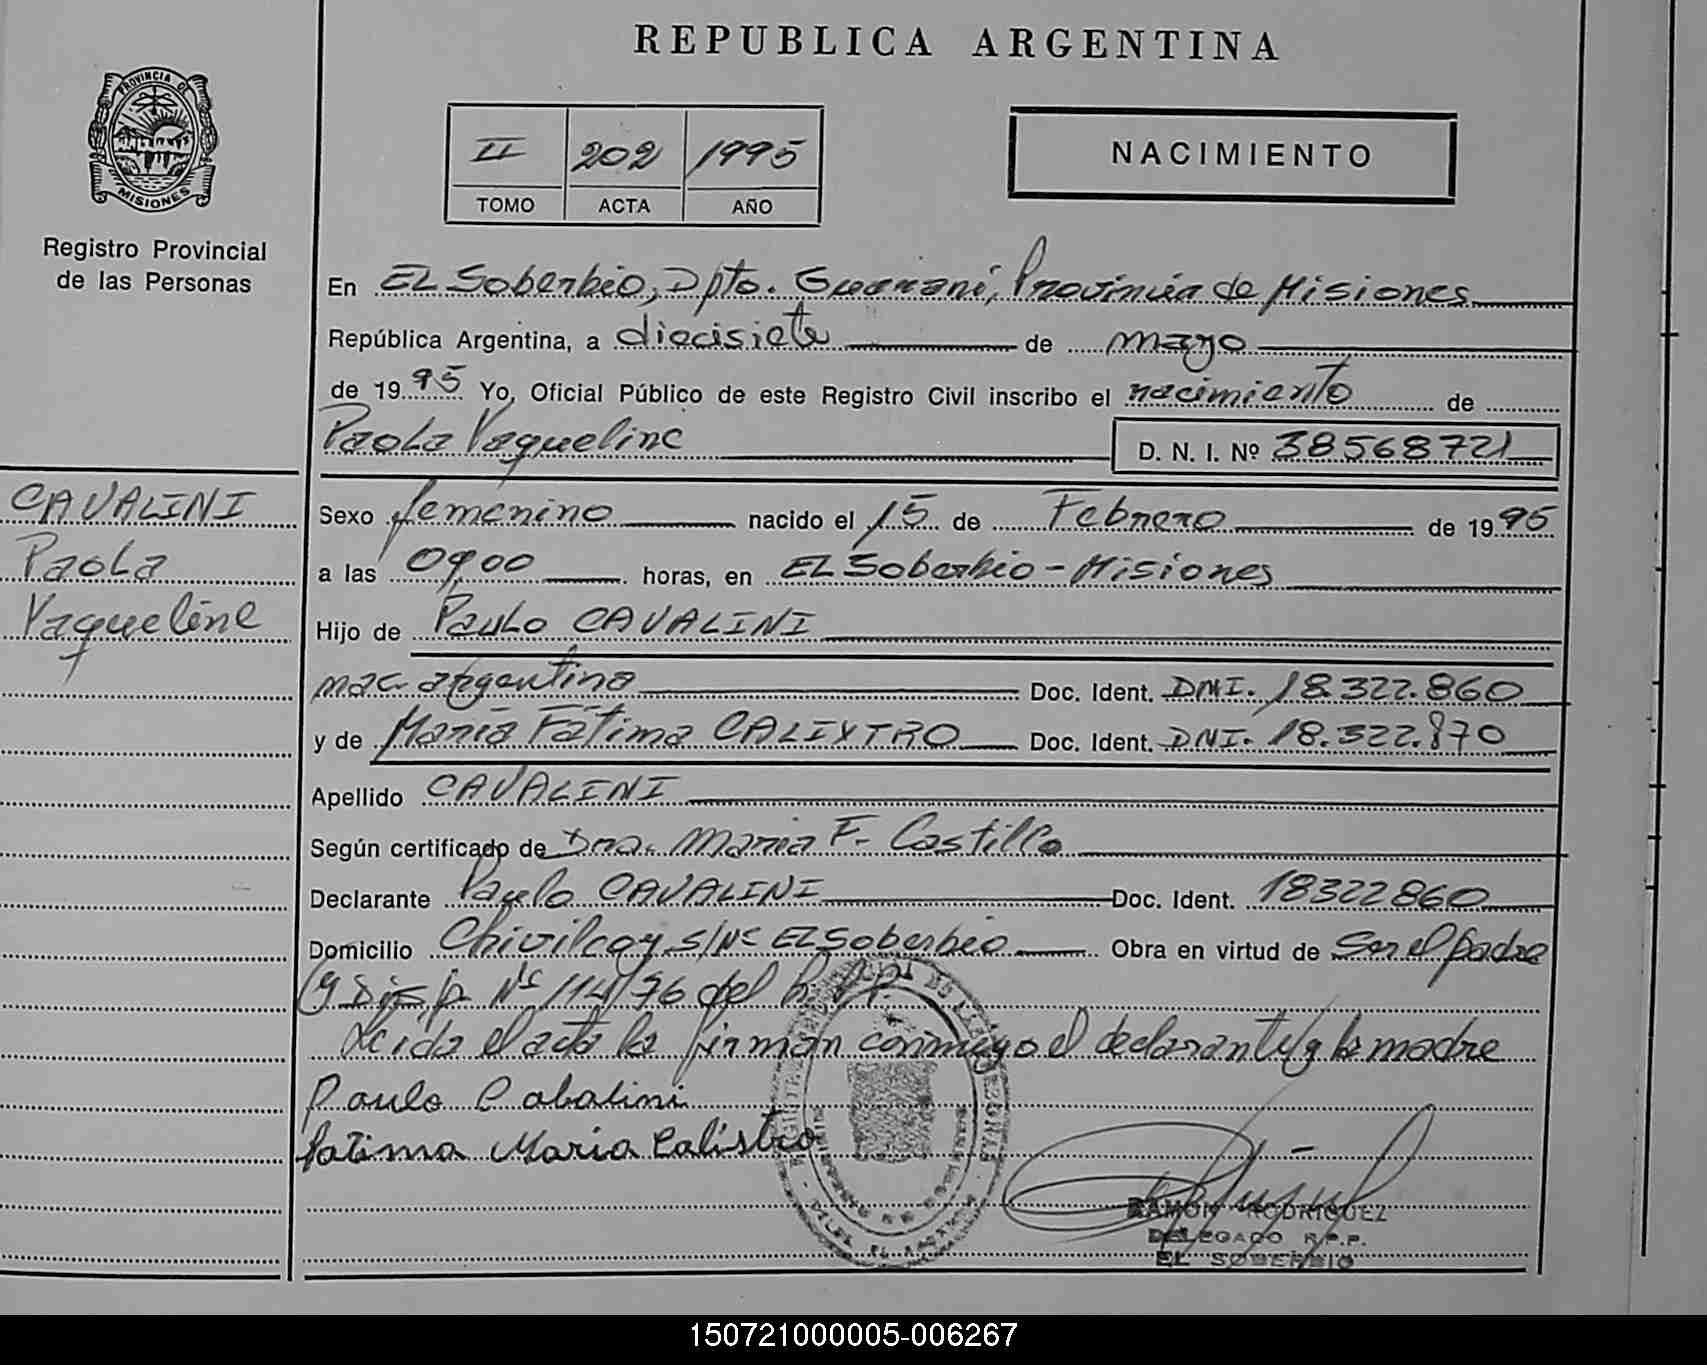 REPUBLICA ARGENTINA
PROVINCIA DE
MISIONES
Registro Provincial
de las Personas
II 202 1995
TOMO ACTA AÑO
NACIMIENTO
En EL Soberbio, Dpto. Guarani, Provincia de Misiones
República Argentina, a diecisiete de mayo
de 1995 Yo, Oficial Público de este Registro Civil inscribo el nacimiento de
Paola Yaqueline D. N. I. Nº 38568721
CAVALINI
Paola
Yaqueline
Sexo femenino nacido el 15 de Febrero de 1995
a las 09,00 horas, en EL Soberbio - Misiones
Hijo de Paulo CAVALINI
nac. argentina Doc. Ident. DNI. 18.322.860
y de Maria Fatima CALIXTRO Doc. Ident. DNI. 18.322.870
Apellido CAVALINI
Según certificado de Dra. Maria F. Castillo
Declarante Paulo CAVALINI Doc. Ident. 18322860
Domicilio Chivilcoy s/Nº EL Soberbio Obra en virtud de Ser el padre
y Disp. Nº 114/76 del R.P.P.
Leida el acta la firman conmigo el declarante y la madre
Paulo Cabalini
fatima Maria Calistro
RAMON RODRIGUEZ
DELEGADO R.P.P.
EL SOBERBIO
150721000005-006267